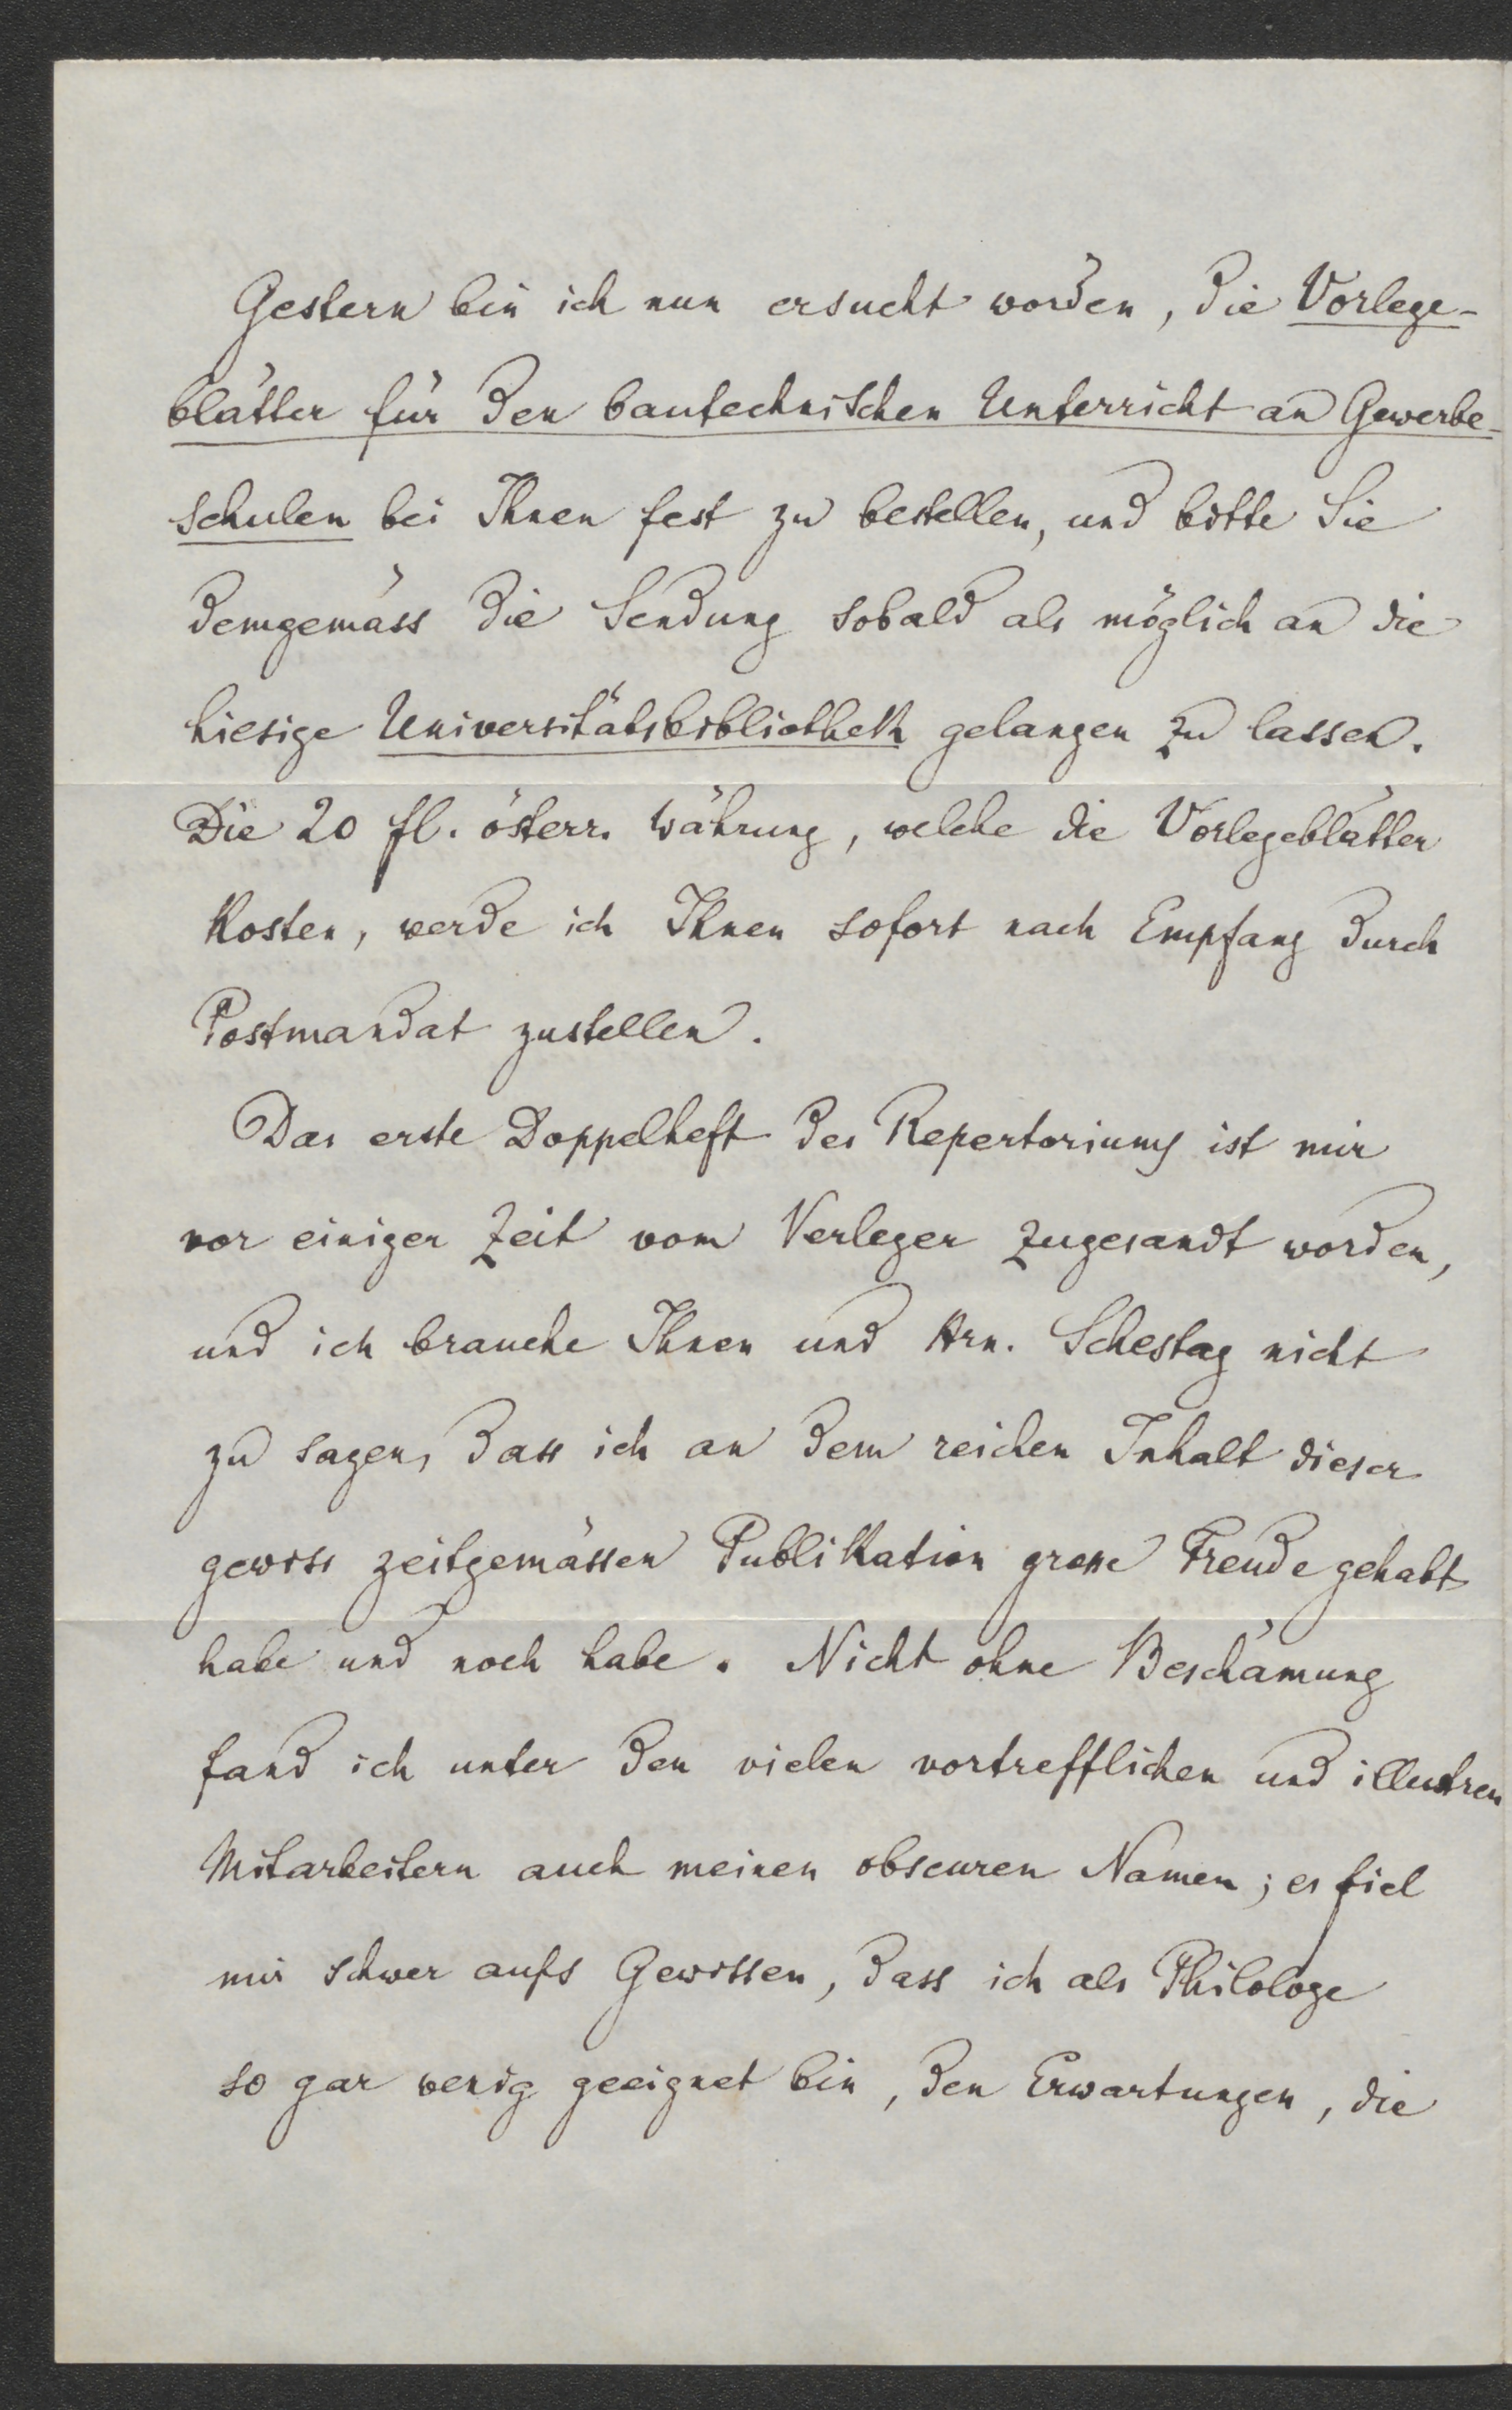 Gestern bin ich nun ersucht worden, die Vorlege-
blätter für den bautechnischen Unterricht an Gewerbe-
schulen bei Ihnen fest zu bestellen, und bitte Sie
demgemäss die Sendung sobald als möglich an die
hiesige Universitätsbibliothek gelangen zu lassen.
Die 20 fl. österr. Währung, welche die Vorlegeblätter
kosten, werde ich Ihnen sofort nach Empfang durch
Postmandat zustellen.
Das erste Doppelheft des Repertoriums ist mir
vor einiger Zeit vom Verleger zugesandt worden,
und ich brauche Ihnen und Hrn. Schestag nicht
zu sagen, dass ich an dem reichen Inhalt dieser
gewiss zeitgemässen Publikation grosse Freude gehabt
habe und noch habe. Nicht ohne Beschämung
fand ich unter den vielen vortrefflichen und illustren
Mitarbeitern auch meinen obscuren Namen; es fiel
mir schwer aufs Gewissen, dass ich als Philologe
so gar wenig geeignet bin, den Erwartungen, die